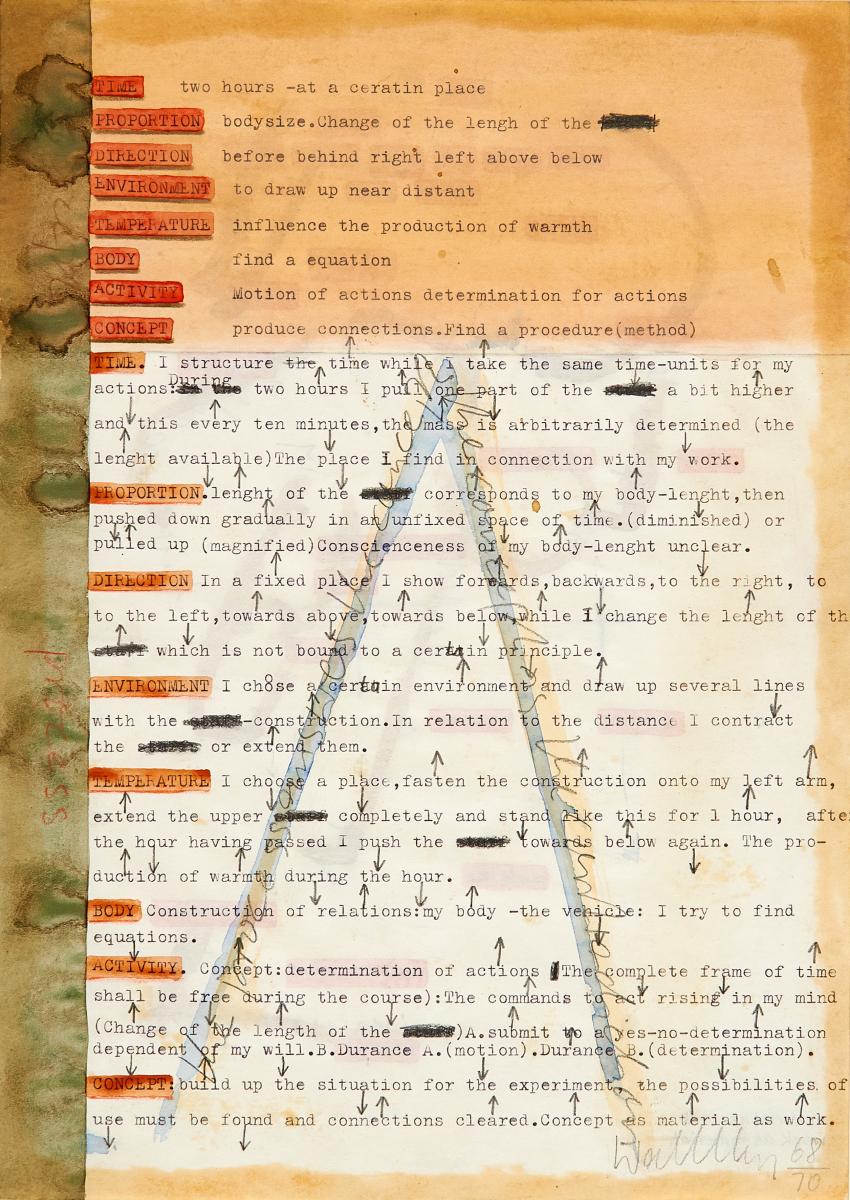 TIME two hours -at a ceratin place
PROPORTION bodysize.Change of the lengh of the
DIRECTION before behind right left above below
ENVIRONMENT to draw up near distant
TEMPERATURE influence the production of warmth
BODY find a equation
ACTIVITY Motion of actions determination for actions
CONCEPT produce connections.Find a procedure(method)
TIME. I structure the time while I take the same time-units for my
actions: During two hours I pull one part of the staff a bit higher
and this every ten minutes,the mass is arbitrarily determined (the
lenght available)The place I find in connection with my work.
PROPORTION.lenght of the staff corresponds to my body-lenght,then
pushed down gradually in an unfixed space of time.(diminished) or
pulled up (magnified)Conscienceness of my body-lenght unclear.
DIRECTION In a fixed place I show forwards,backwards,to the right, to
to the left,towards above,towards below,while I change the lenght of th
staff which is not bound to a certain principle.
ENVIRONMENT I chose a certain environment and draw up several lines
with the staff-construction.In relation to the distance I contract
the staffs or extend them.
TEMPERATURE I choose a place,fasten the construction onto my left arm,
extend the upper staff completely and stand like this for 1 hour, afte
the hour having passed I push the staff towards below again. The pro-
duction of warmth during the hour.
BODY Construction of relations:my body -the vehicle: I try to find
equations.
ACTIVITY. Concept:determination of actions (The complete frame of time
shall be free during the course):The commands to act rising in my mind
(Change of the length of the staff)A.submit to a yes-no-determination
dependent of my will.B.Durance A.(motion).Durance B.(determination).
CONCEPT:build up the situation for the experiment, the possibilities of
use must be found and connections cleared.Concept as material as work.
68
70